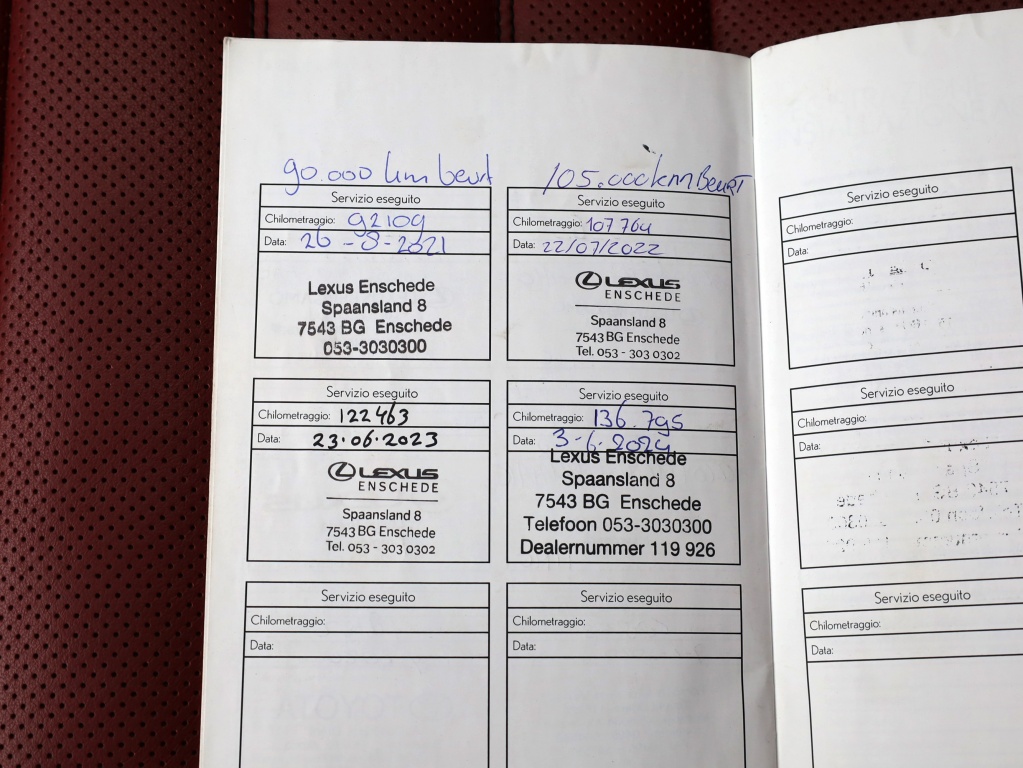 90.000 km beurt
Servizio eseguito
Chilometraggio: 92109
Data: 26-8-2021
Lexus Enschede
Spaansland 8
7543 BG Enschede
053-3030300
105.000km Beurt
Servizio eseguito
Chilometraggio: 107764
Data: 22/07/2022
LEXUS
ENSCHEDE
Spaansland 8
7543 BG Enschede
Tel. 053 - 303 0302
Servizio eseguito
Chilometraggio: 122463
Data: 23.06.2023
LEXUS
ENSCHEDE
Spaansland 8
7543 BG Enschede
Tel. 053 - 303 0302
Servizio eseguito
Chilometraggio: 136.795
Data: 3-6-2024
Lexus Enschede
Spaansland 8
7543 BG Enschede
Telefoon 053-3030300
Dealernummer 119 926
Servizio eseguito
Chilometraggio:
Data:
Servizio eseguito
Chilometraggio:
Data:
Servizio eseguito
Chilometraggio:
Data:
Servizio eseguito
Chilometraggio:
Data:
Servizio eseguito
Chilometraggio:
Data: